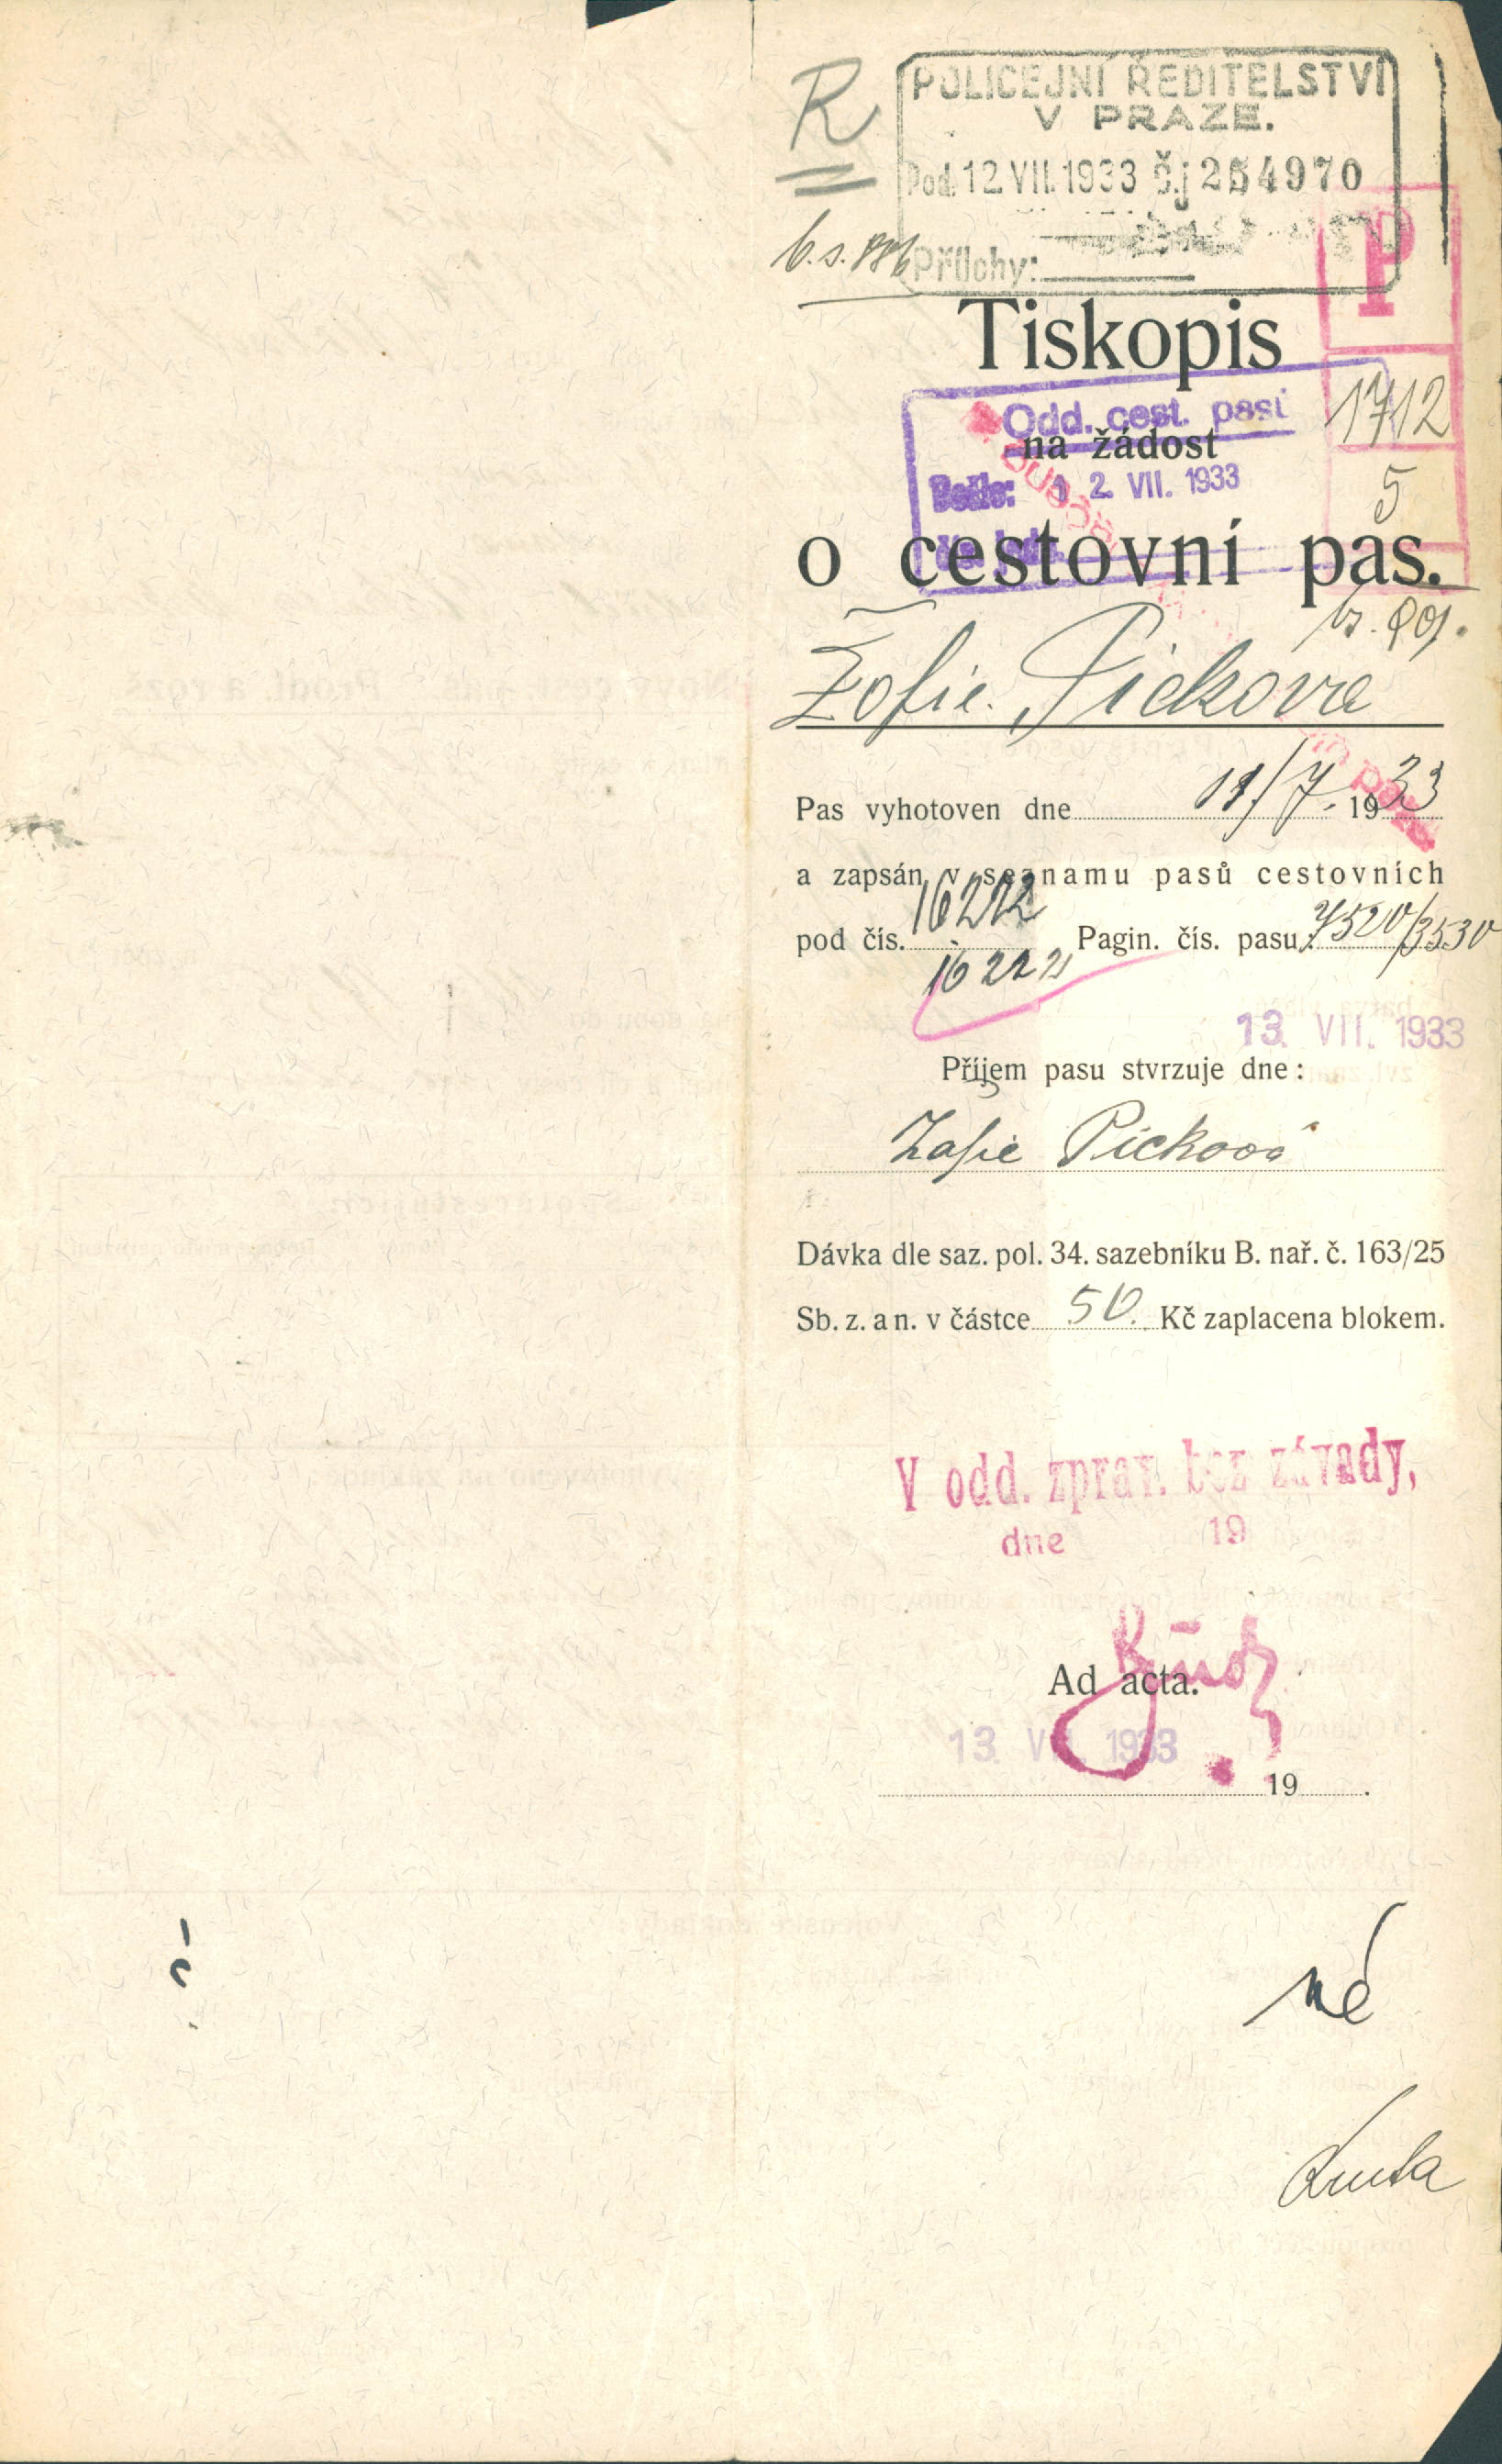 R
POLICEJNÍ ŘEDITELSTVÍ
V PRAZE.
Pod. 12.VII.1933 Č.j 254970
Přílohy:
P
Tiskopis
1712
Odd. cest. pasů
na žádost
Došlo: 12. VII. 1933
5
o cestovní pas.
Žofie Picková
Pas vyhotoven dne 11/7. 1933
a zapsán v seznamu pasů cestovních
pod čís. 16212 Pagin. čís. pasu: 7520/3530
16222
13. VII. 1933
Příjem pasu stvrzuje dne:
Žofie Picková
Dávka dle saz. pol. 34. sazebníku B. nař. č. 163/25
Sb. z. a n. v částce 50. Kč zaplacena blokem.
V odd. zprav. bez závady,
dne 19
Ad acta.
13. VII. 1933
19 .